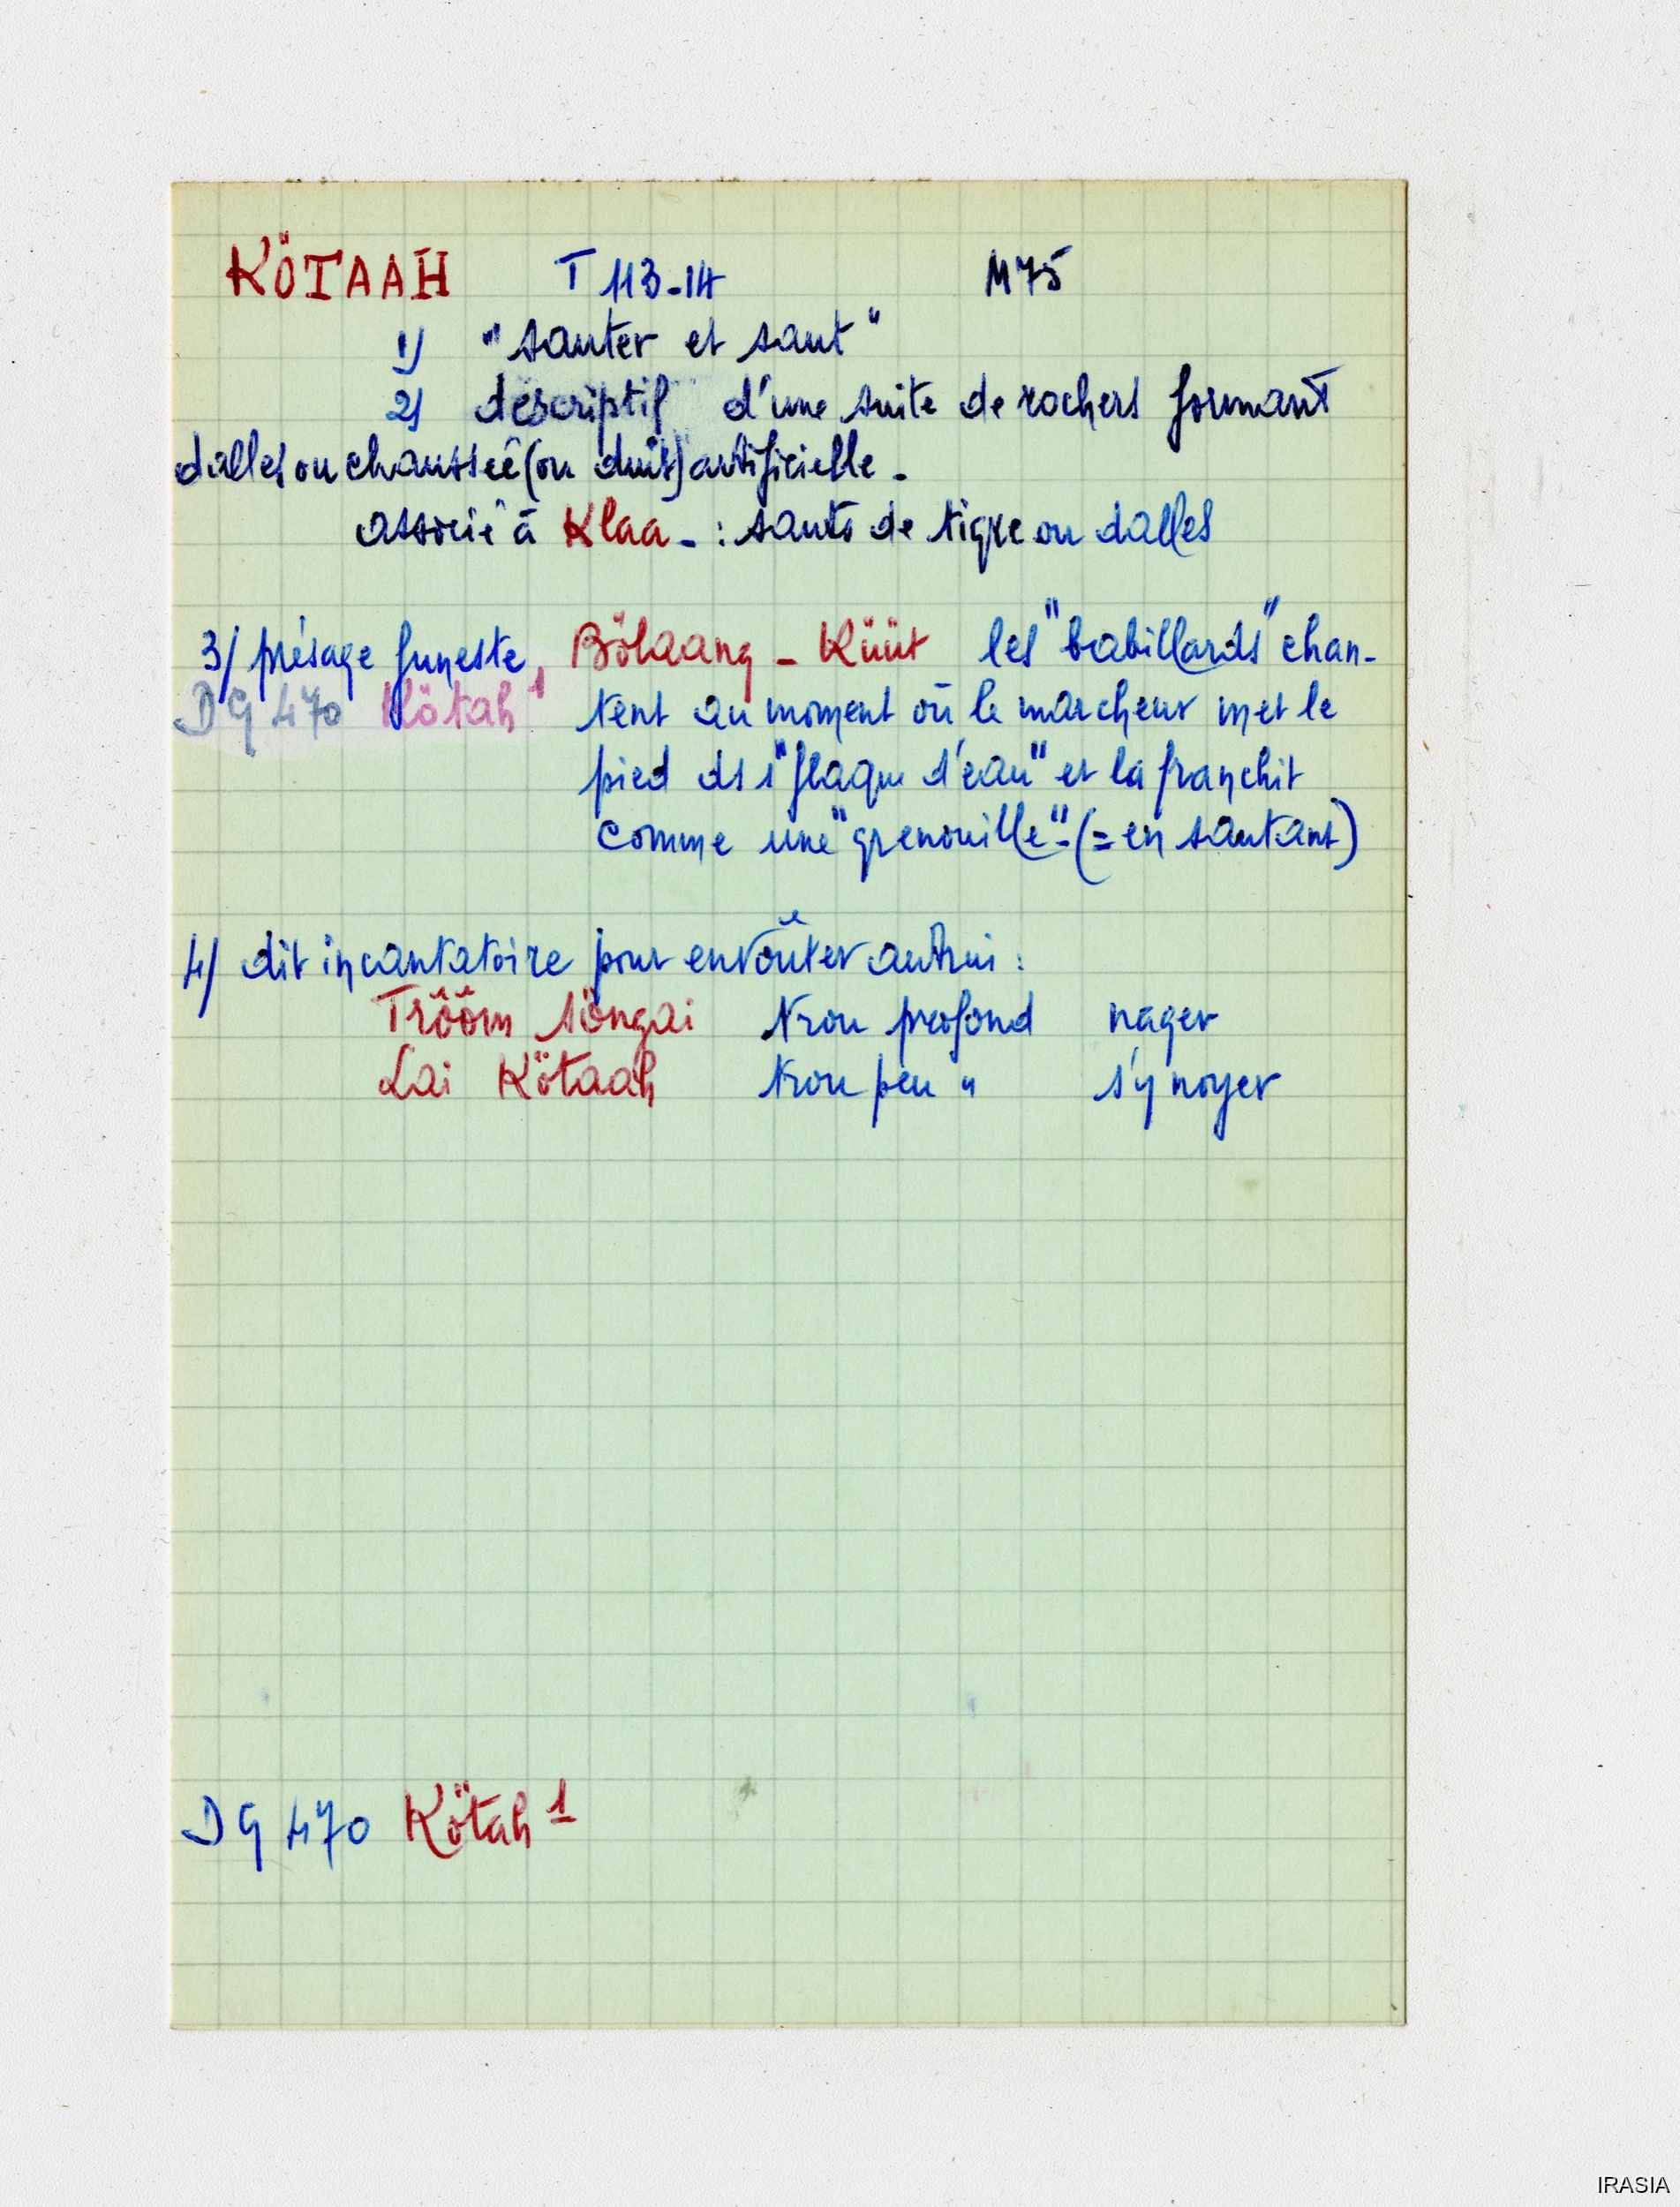 KÖTAAH T 113-14 M75
1) "sauter et saut"
2) descriptif d'une suite de rochers formant
dalles ou chaussée (ou duit) artificielle.
associé à Klaa - : sauts de tigre ou dalles
3/ présage funeste, Bölaang - Küüt les "babillards" chan-
DG 470 Kötah 1 tent au moment où le marcheur met le
pied ds 1 "flaque d'eau" et la franchit
comme une "grenouille" - (= en sautant)
4/ dit incantatoire pour envoûter autrui :
Trôôm söngai trou profond nager
Lai Kötaah trou peu " s'y noyer
DG 470 Kötah 1
IRASIA